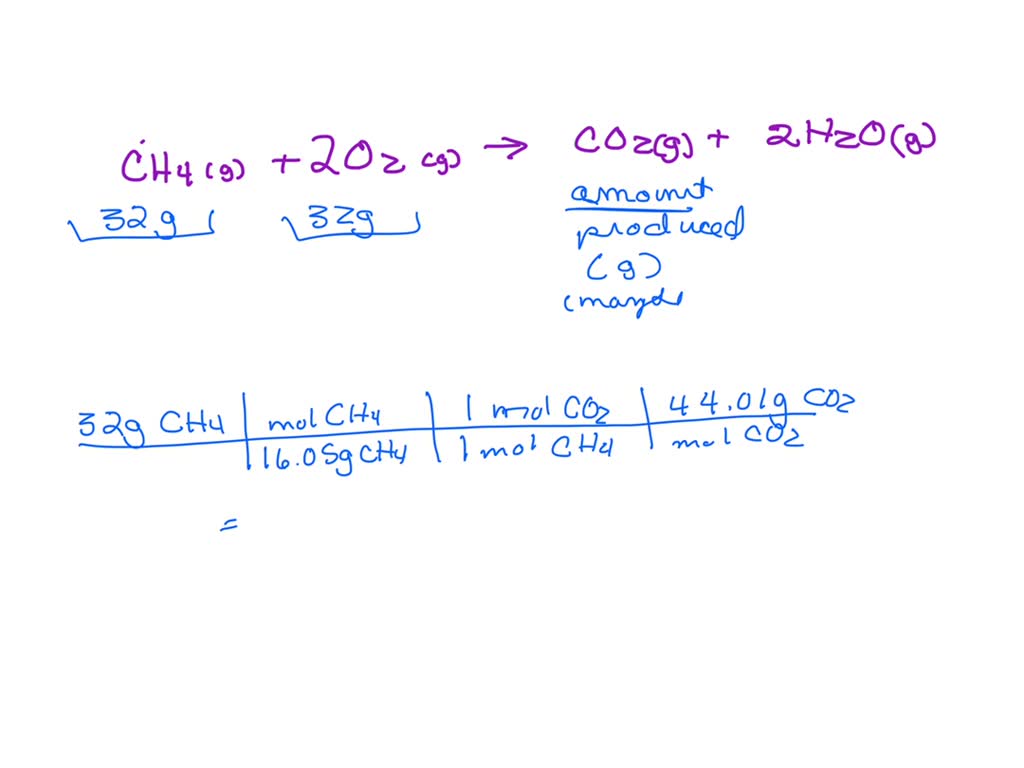 CH4 (g) + 2O2 (g) → CO2(g) + 2H2O(g)
32g 32g amount
produced
(g)
32g CH4 | mol CH4 | 1 mol CO2 | 44.01g CO2
16.05g CH4 | 1 mol CH4 | mol CO2
=